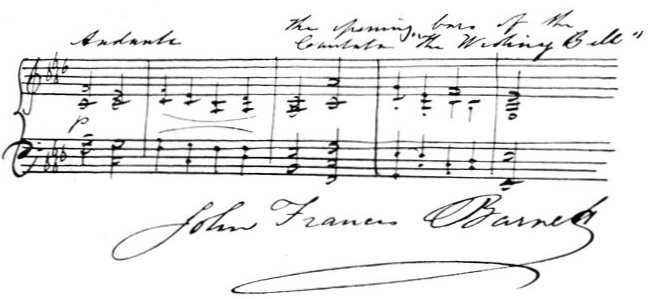 Andante
the opening bars of the
Cantata "The Wishing Bell"
p
John Francis Barnett